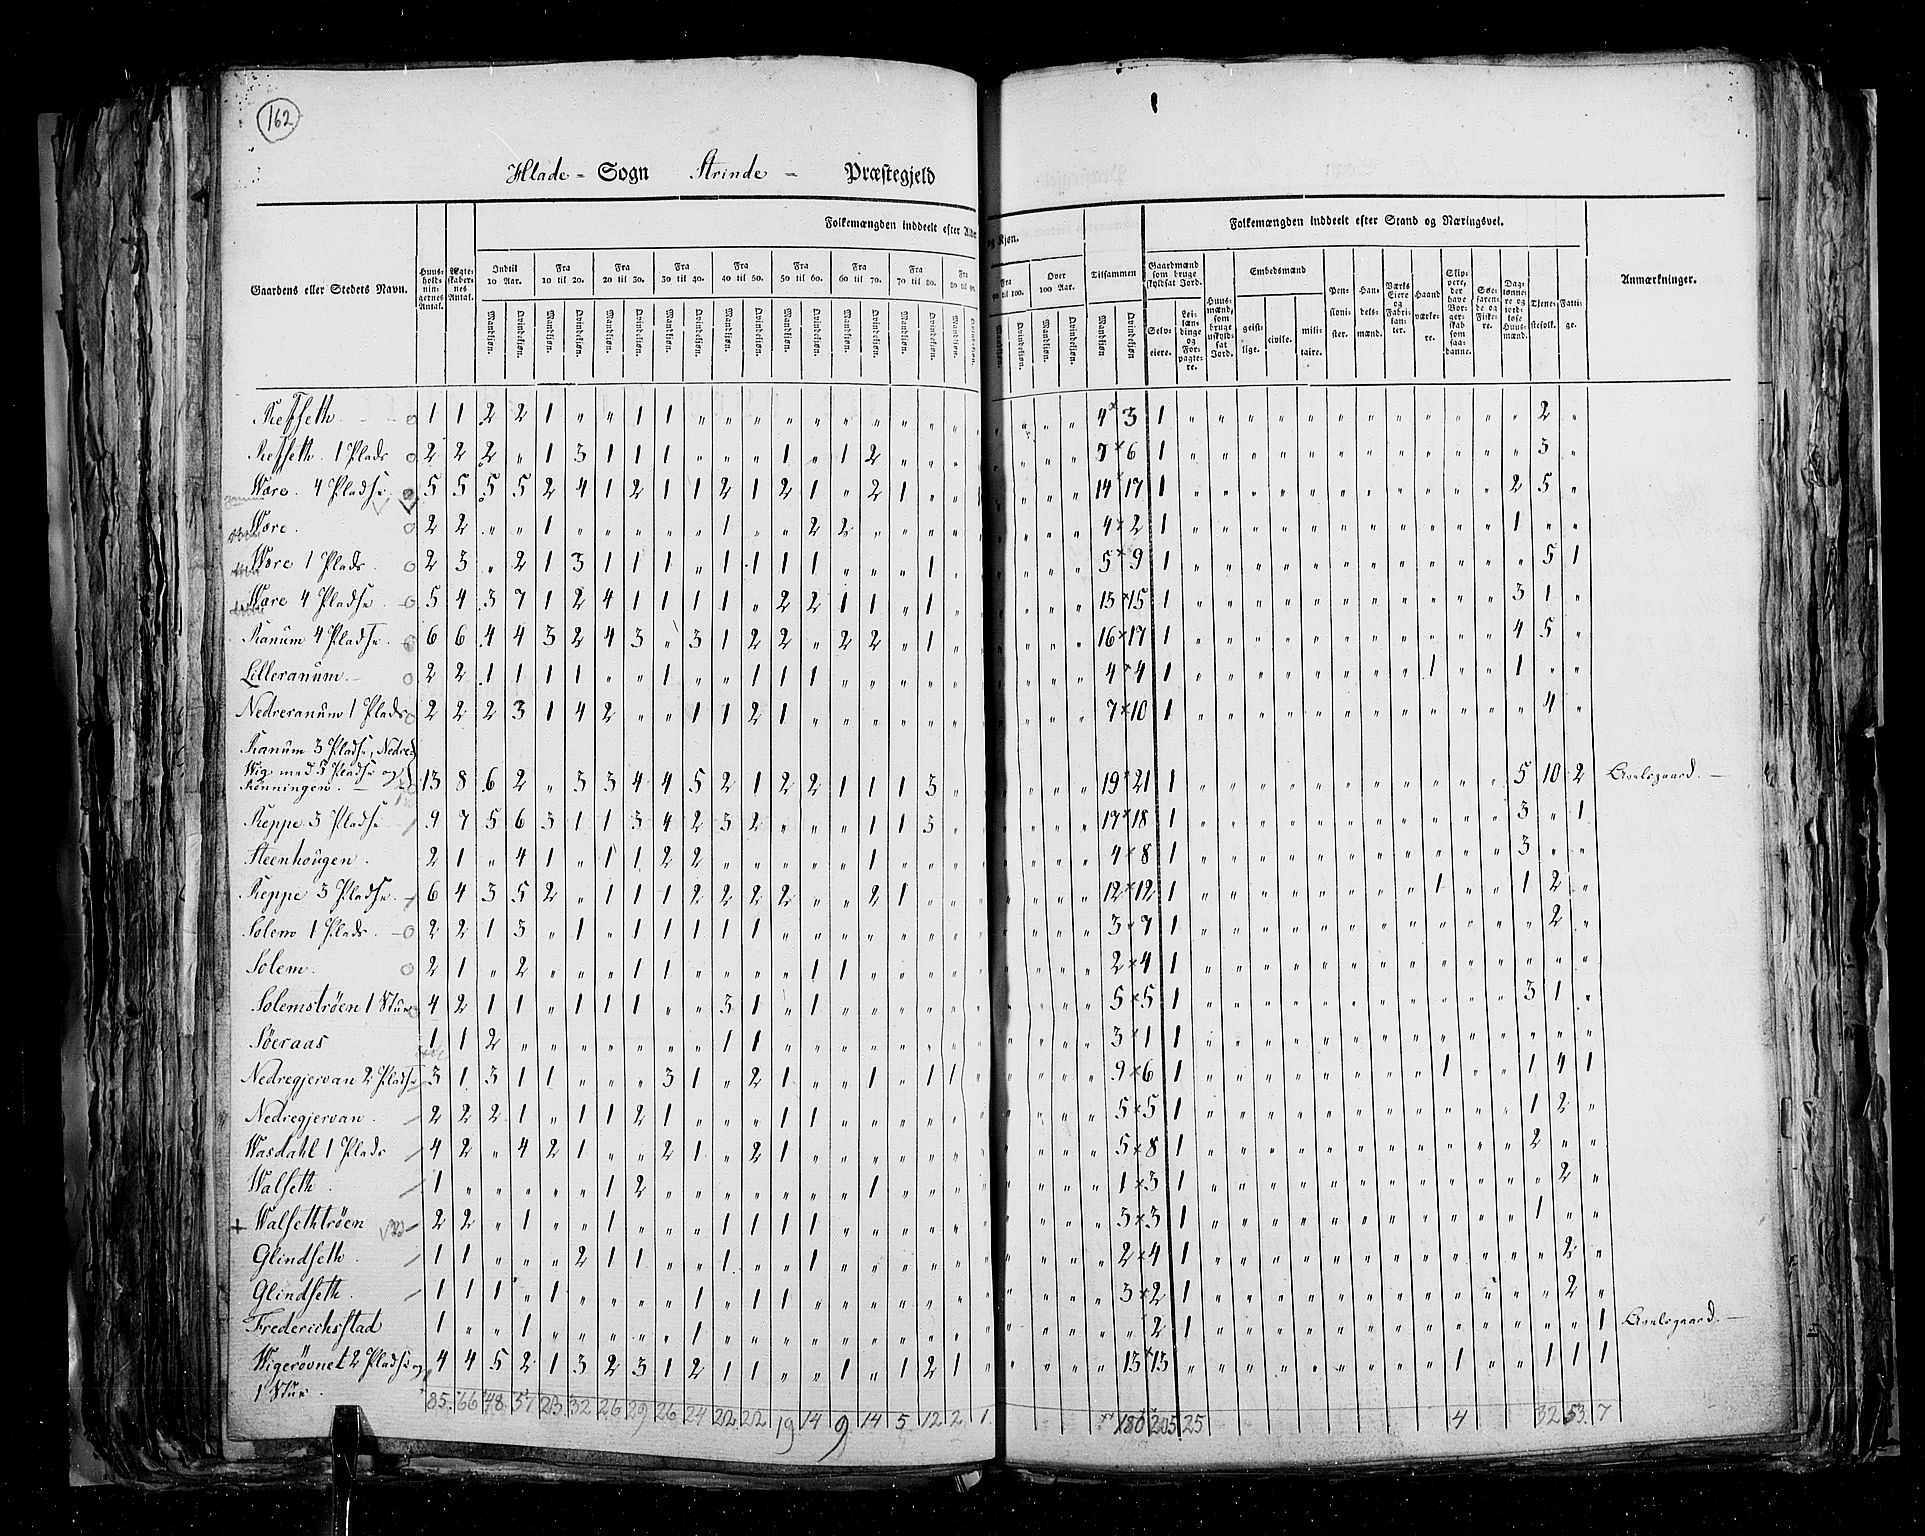 162
Hlade - Sogn Strinde - Præstegjeld
Folkemængden inddeelt efter Alder og Kjøn.
Folkemængden inddeelt efter Stand og Næringsvei.
Gaardens eller Stedets Navn.
Huus-holdnin-gernes Antal.
Ægte-skaber-nes Antal.
Indtil 10 Aar.
Fra 10 til 20.
Fra 20 til 30.
Fra 30 til 40.
Fra 40 til 50.
Fra 50 til 60.
Fra 60 til 70.
Fra 70 til 80.
Fra 80 til 90.
Fra 90 til 100.
Over 100 Aar.
Tilsammen
Mandkjøn. Qvindekjøn.
Gaardmænd som bruge skyldsat Jord.
Selv-eiere.
Lei-lændinge og For-pagte-re.
Huus-mænd, som bruge uskyld-sat Jord.
Embedsmænd
geist-lige.
civile.
mili-taire.
Pen-sioni-ster.
Han-dels-mænd.
Værks Eiere og Fabri-kan-ter.
Haand-værke-re.
Skip-pere, der have Bor-ger-skab som saa-danne.
Søe-farende og Fiske-re.
Dag-lønne-re og jord-løse Huus-mænd.
Tjene-stefolk.
Fatti-ge.
Anmærkninger.
Refseth. 1 1 2 2 1 „ „ 1 1 4 3 1 2
Refseth. 1 Plads 2 2 2 „ 1 3 1 1 1 „ „ „ 1 „ 1 2 7 6 1 3
Wære. 4 Pladse 5 5 5 5 2 4 1 2 1 1 2 1 2 1 „ 2 1 14 17 1 2 5
Wære. 2 2 „ „ 1 „ „ „ „ „ 1 „ „ 2 2 4 2 1 1
Wære 1 Plads. 2 3 „ 2 1 3 1 1 1 „ 1 1 1 1 „ „ „ 1 5 9 1 5 1
Wære 4 Pladse 5 4 3 7 1 2 4 1 1 1 1 „ 2 2 1 1 „ 1 13 15 1 3 1
Ranum 4 Pladse 6 6 4 4 3 2 4 3 „ 3 1 2 2 „ 2 2 „ 1 16 17 1 4 5
Lilleranum. 2 2 1 1 1 1 „ „ 1 „ „ 1 1 1 4 4 1 1 1
Nedreranum 1 Plads 2 2 2 3 1 4 2 „ „ 1 1 2 1 7 10 1 4
Ranum 3 Pladse, Nedre
Wig med 5 Pladse og
Rønningen. 13 8 6 2 „ 3 3 4 4 5 2 1 2 2 1 1 1 3 19 21 1 5 10 2 Avelsgaard.
Reppe 3 Pladse 9 7 5 6 3 1 1 3 4 2 3 2 „ „ „ 1 1 3 17 18 1 3 „ 1
Steenhougen. 2 1 „ 4 1 „ 1 1 2 2 „ „ „ „ „ 1 4 8 1 3
Reppe 3 Pladse. 6 4 3 5 2 „ 1 1 1 2 2 2 2 „ „ 2 1 12 12 1 1 1 2
Solem 1 Plads. 2 2 1 3 „ 1 „ 1 1 1 1 1 3 7 1 2
Solem. 2 1 „ 2 „ „ „ 1 1 „ „ „ „ 1 1 2 4 1
Solemstrøen 1 Stue 4 2 1 1 „ 1 1 1 „ „ 3 1 „ 1 5 5 1 3 1
Søeraas 1 1 2 „ „ „ „ „ „ „ 1 1 3 1 1
Nedregjervan 2 Pladse 3 1 3 1 1 „ „ „ 3 1 „ 2 1 „ „ 1 „ 1 1 9 6 1 1 1 4 1
Nedregjervan. 2 2 2 1 „ 1 1 2 1 „ „ „ 1 1 5 5 1 1 2
Wasdahl 1 Plads 4 2 „ 4 2 1 „ „ 2 1 „ 2 1 5 8 1 2
Walseth. 1 „ „ „ „ „ 1 2 „ „ „ „ „ „ „ 1 1 3 1 2
Walsethtrøen 2 2 „ 1 „ „ 1 „ „ „ 1 1 1 1 3 3 1 1
Glindseth. 1 1 „ „ „ 2 1 1 „ „ 1 „ „ 1 2 4 1 2
Glindseth. 1 1 1 „ 1 „ „ „ „ 1 „ 1 1 3 2 1 2
Frederichsstad 1 „ „ 1 „ „ „ „ „ 1 „ 2 1 1 Avelsgaard.
Wigerøvnet 2 Pladse og 4 4 5 2 1 3 2 3 1 2 1 1 „ „ 1 „ 1 2 1 13 13 „ 1 1 1 1
1 Stue.
85. 66 48. 57 23. 32 26 29 26 24 22 22 19 14 9 14 5 12 2 1 180 205 25 4 32 53. 7